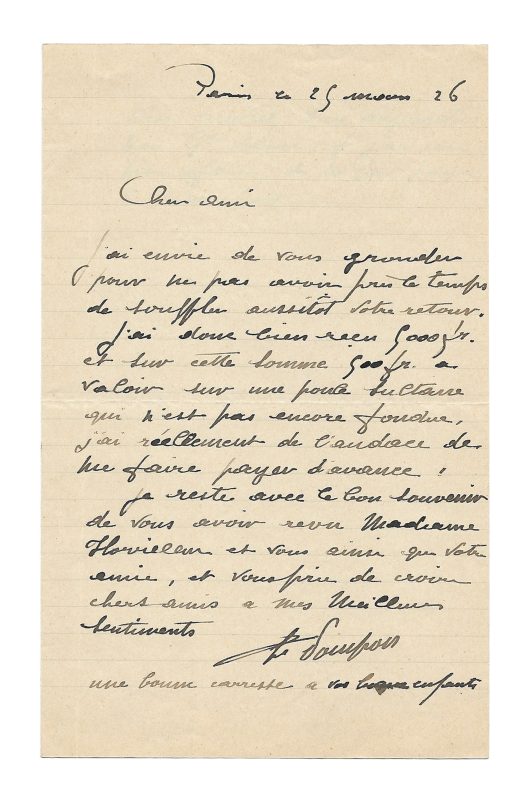 Paris le 25 mars 26
Cher ami
j'ai envie de vous gronder
pour ne pas avoir pris le temps
de souffler aussitot votre retour.
j'ai donc bien recu 5000 fr.
et sur cette somme 500 fr. a
valoir sur une poule sultane
qui n'est pas encore fondue,
j'ai réellement de l'audace de
me faire payer d'avance !
je reste avec le bon souvenir
de vous avoir revu Madame
et vous ainsi que votre
amie, et vous prie de croire
chers amis a mes Meilleurs
sentiments
Pompon
une bonne carresse a vos enfants